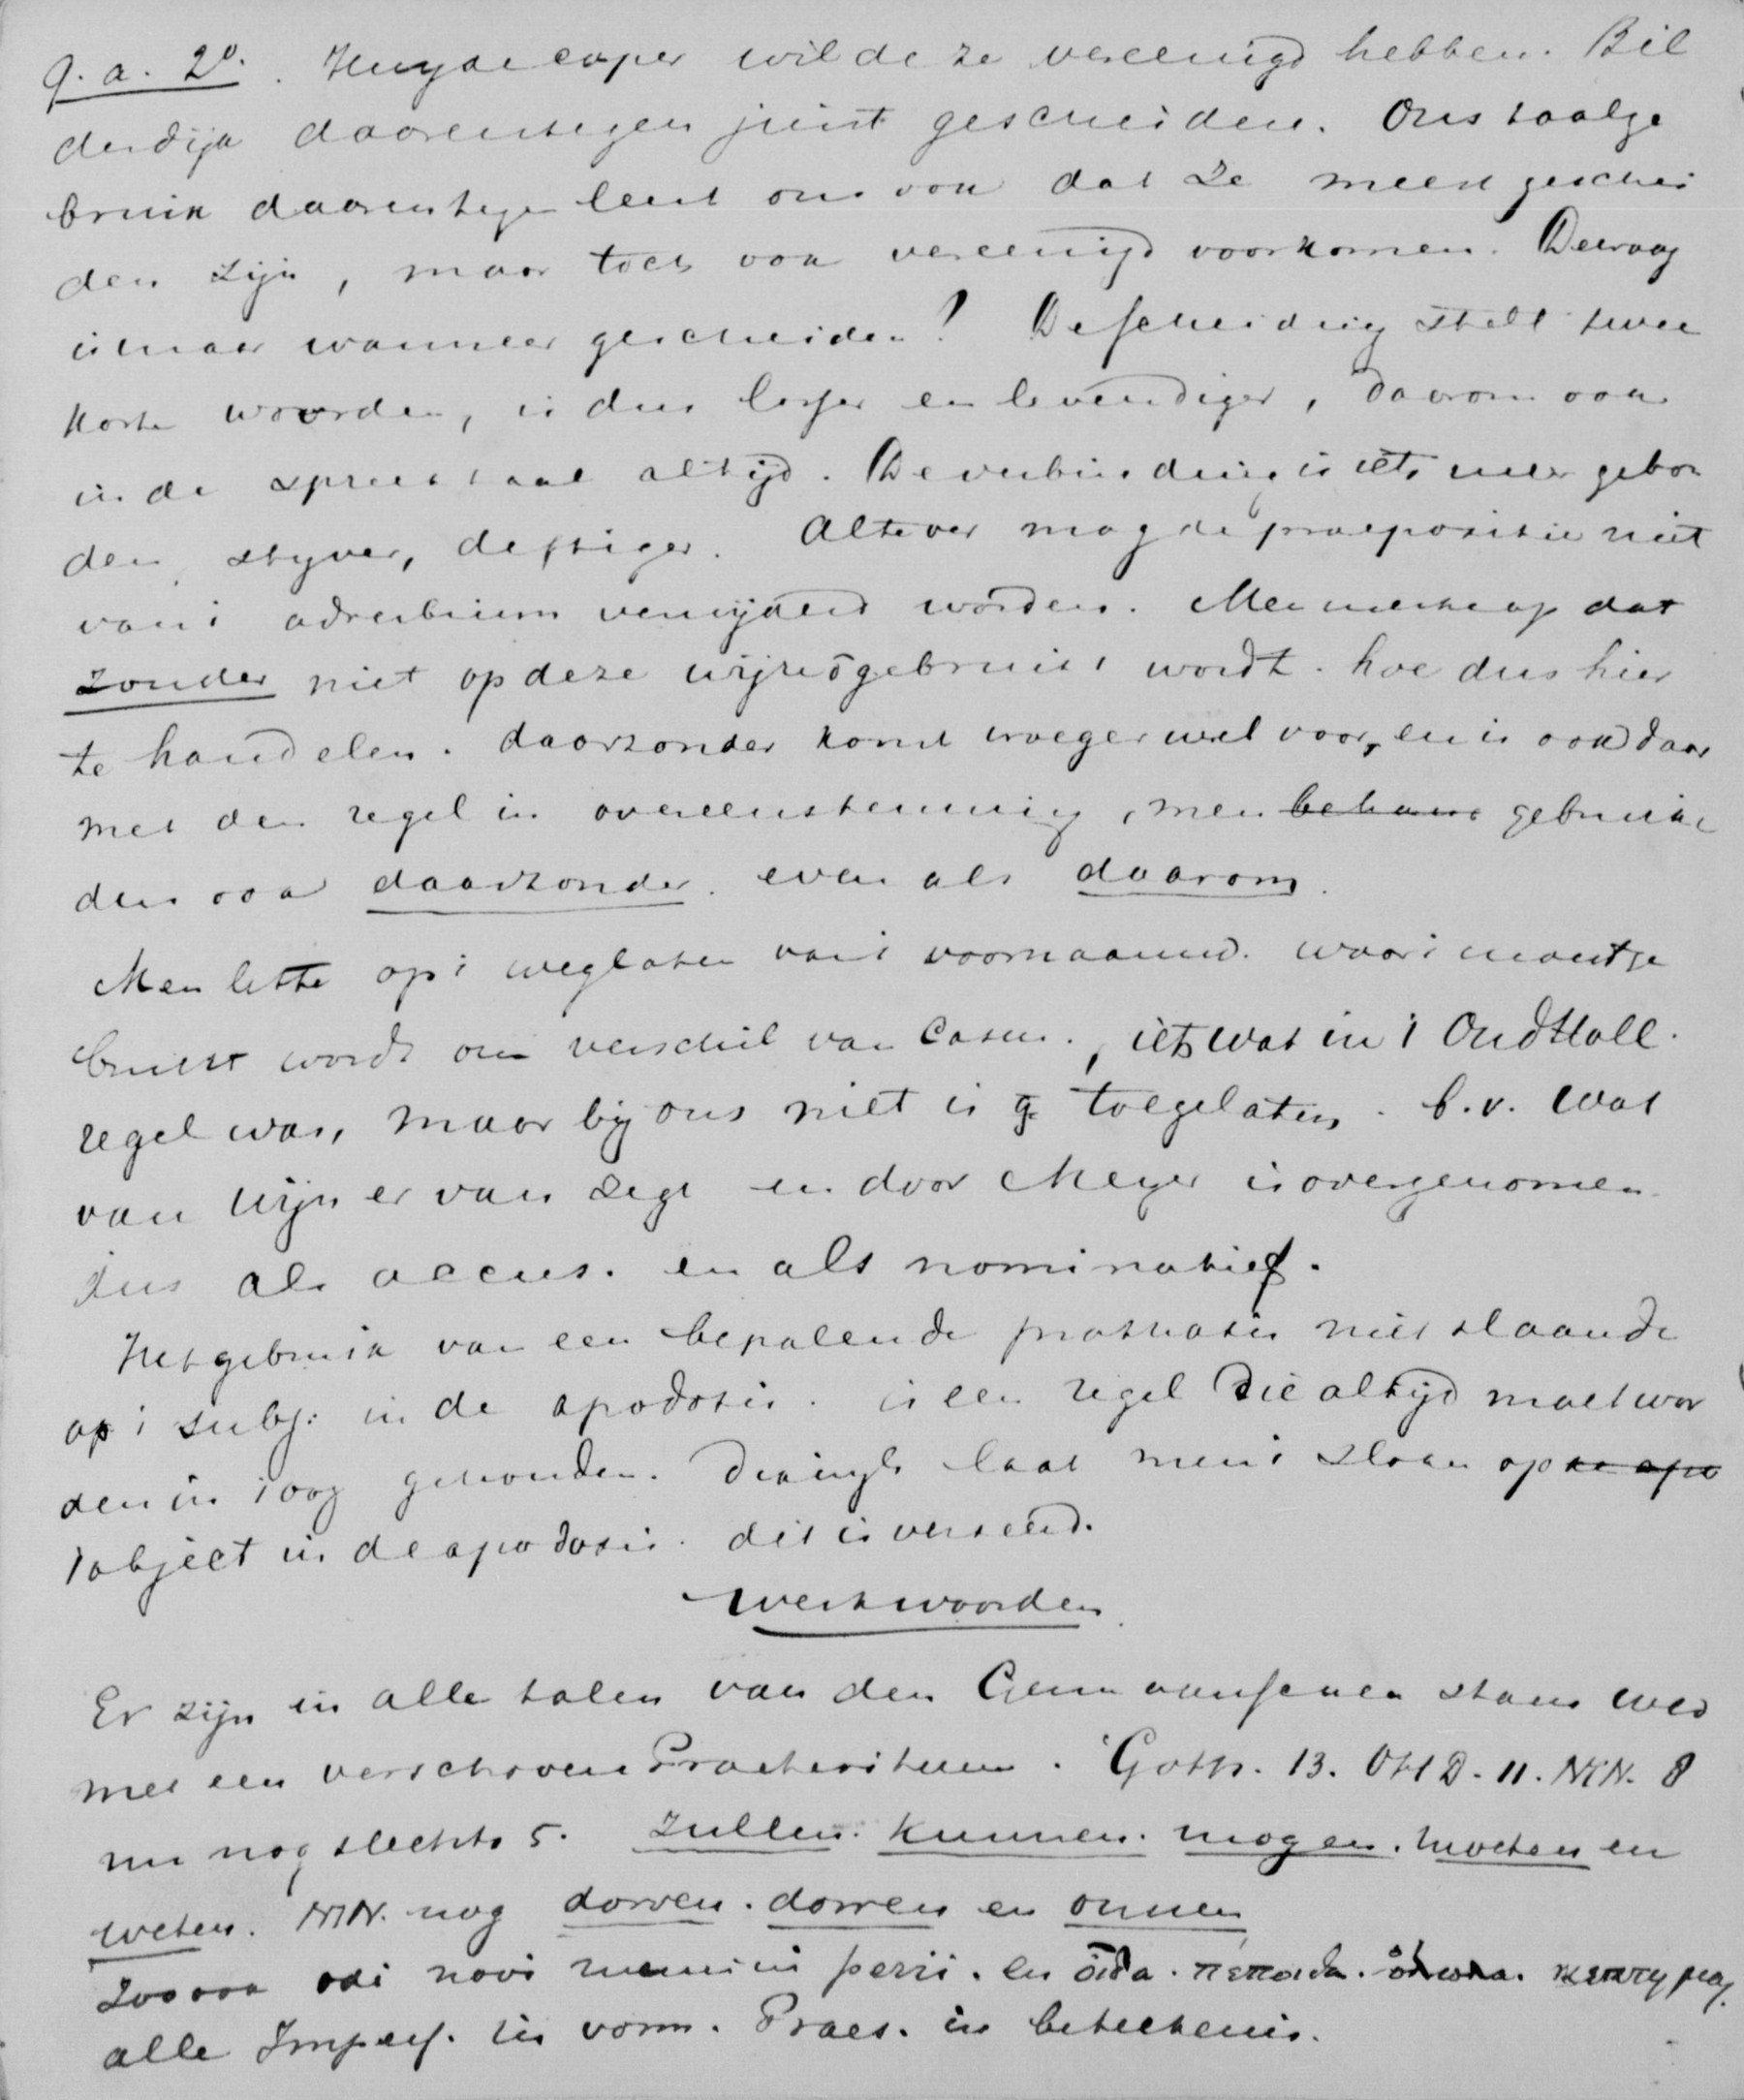 9. a. 2º. Huydecoper wilde ze vereenigd hebben. Bil
derdijk daarentegen juist gescheiden. Ons taalge
bruik daarentegen leert ons ook dat ze meest geschei
den zijn, maar toch ook vereenigd voorkomen. De vraag
is maar wanneer gescheiden? De scheiding stelt twee
korte woorden, is dus losser en levendiger, daarom ook
in de spreektaal altijd. De verbinding is iets meer gebon
den, styver, deftiger. Altever mag de praepositie niet
van 't adverbium verwijderd worden. Men merke op dat
zonder niet op deze wijze gebruikt wordt. hoe dus hier
te handelen. daarzonder komt vroeger wel voor, en is ook daar
met den regel in overeenstemming, men gebruike
dus ook daarzonder even als daarom.
Men lette op 't weglaten van 't voornaamw. waar 't moest ge
bruikt wordt om verschil van Casus., iets wat in 't Oud Holl.
regel was, maar bij ons niet is toegelaten. b.v. Wat
van Wijn er van zegt en door Meyer is overgenomen
dus als accus. en als nominatief.
Het gebruik van een bepalende protasis niet slaande
op 't subj. in de apodosis. is een regel die altijd moet wor
den in 't oog gehouden. Dikwijls laat men 't slaan op
't object in de apodosis. dit is verkeerd.
Werkwoorden
Er zijn in alle talen van den Germaanschen stam wed
met een verschoven Praeteritum. Goth. 13. OHD. 11. MN. 8
nu nog slechts 5. Zullen. kunnen. mogen. moeten en
weten. MN. nog dorven. dorren en onnen
Zoo ook odi novi memini perii. en οἶδα. πέποιθα.
alle Imperf. in vorm. Praes. in beteekenis.